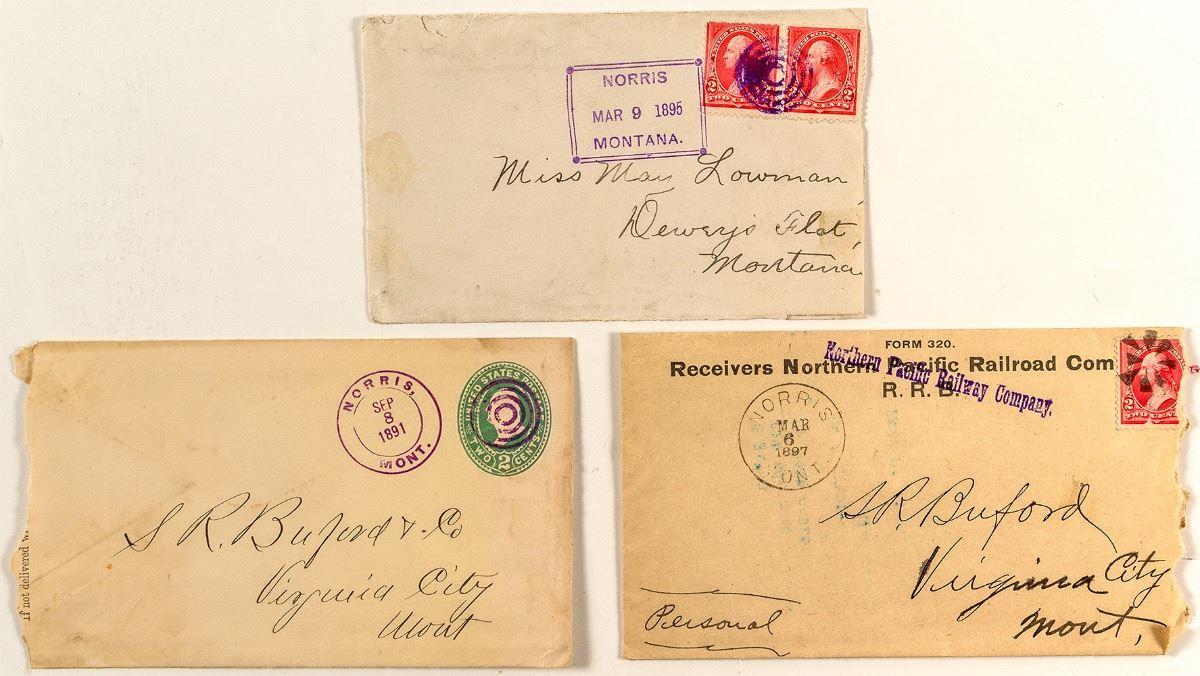 NORRIS
MAR 9 1895
MONTANA.
2 TWO CENTS
TWO CENTS 2
Miss May Lowman
Dewey's Flat,
Montana
NORRIS,
SEP
8
1891
MONT.
UNITED STATES
TWO 2 CENTS
S R. Buford & Co
Virginia City
Mont
If not delivered w
FORM 320.
Receivers Northern Pacific Railroad Com
R. R. B.
Northern Pacific Railway Company.
NORRIS
MAR
6
1897
MONT.
2 TWO CENT
S. R. Buford
Virginia City
Mont,
Personal